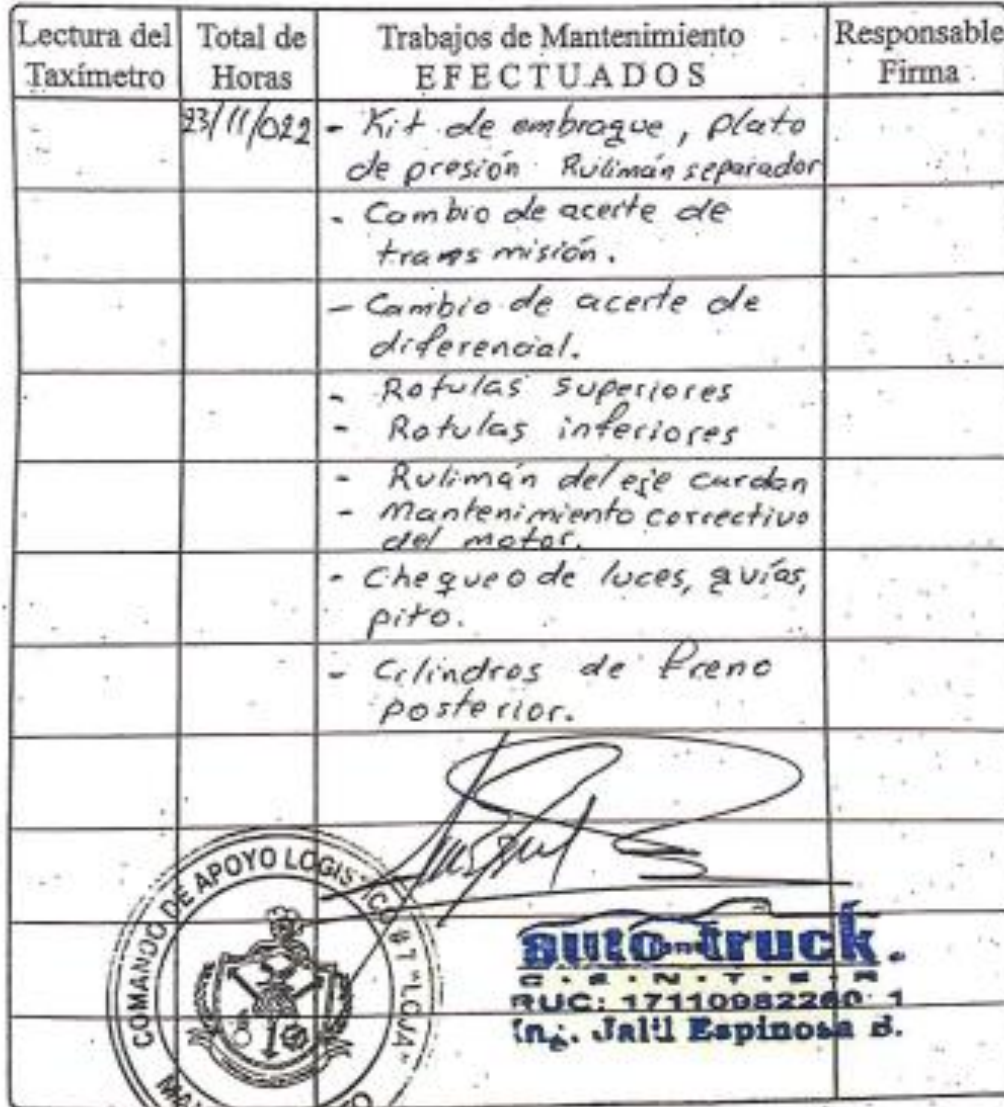 Lectura del Taxímetro
Total de Horas
Trabajos de Mantenimiento EFECTUADOS
Responsable Firma
23/11/022
- Kit de embrague, plato
de presión Rulimán separador
- Cambio de aceite de
transmisión.
- Cambio de aceite de
diferencial.
- Rotulas superiores
- Rotulas inferiores
- Rulimán del eje cardan
- Mantenimiento correctivo
del motor.
- Chequeo de luces, guías,
pito.
- Cilindros de freno
posterior.
COMANDO DE APOYO LOGISTICO # 7 "LOJA"
auto truck.
C·E·N·T·E·R
RUC: 1711098226
Ing. Jalil Espinosa B.